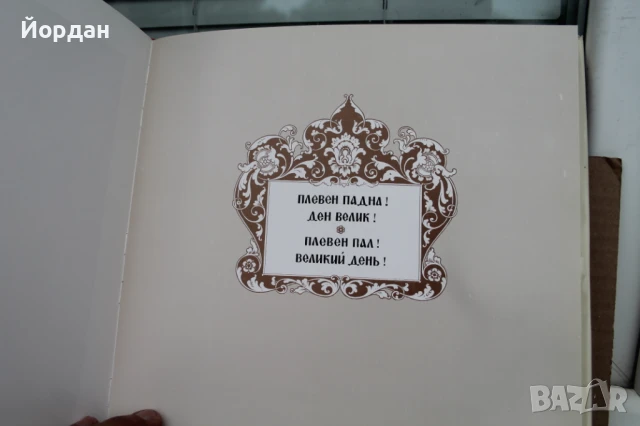 Йордан
ПЛЕВЕН ПАДНА!
ДЕН ВЕЛИК!
ПЛЕВЕН ПАЛ!
ВЕЛИКИЙ ДЕНЬ!
BAZAR